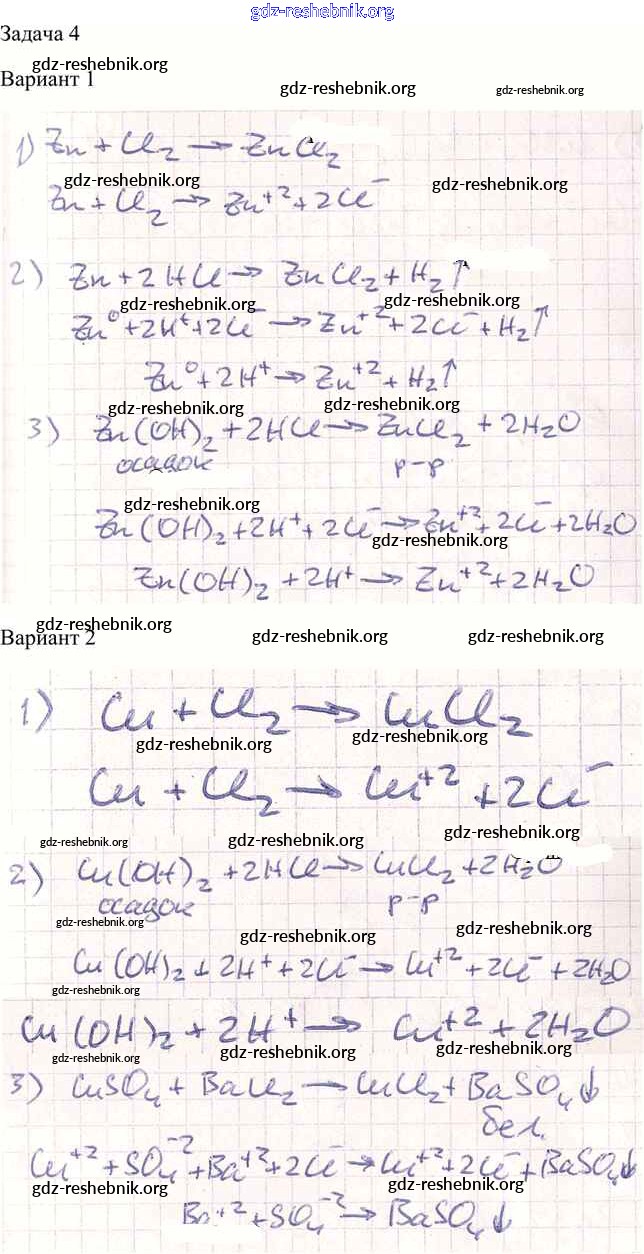 gdz-reshebnik.com
Задача 4
gdz-reshebnik.org
Вариант 1
gdz-reshebnik.org gdz-reshebnik.org
1) Zn + Cl₂ → ZnCl₂
gdz-reshebnik.org gdz-reshebnik.org
Zn + Cl₂ → Zn⁺² + 2Cl⁻
2) Zn + 2HCl → ZnCl₂ + H₂↑
gdz-reshebnik.org gdz-reshebnik.org
Zn⁰ + 2H⁺ + 2Cl⁻ → Zn⁺² + 2Cl⁻ + H₂↑
Zn⁰ + 2H⁺ → Zn⁺² + H₂↑
gdz-reshebnik.org gdz-reshebnik.org
3) Zn(OH)₂ + 2HCl → ZnCl₂ + 2H₂O
осадок р-р
gdz-reshebnik.org
Zn(OH)₂ + 2H⁺ + 2Cl⁻ → Zn⁺² + 2Cl⁻ + 2H₂O
gdz-reshebnik.org
Zn(OH)₂ + 2H⁺ → Zn⁺² + 2H₂O
gdz-reshebnik.org
Вариант 2 gdz-reshebnik.org gdz-reshebnik.org
1) Cu + Cl₂ → CuCl₂
gdz-reshebnik.org gdz-reshebnik.org
Cu + Cl₂ → Cu⁺² + 2Cl⁻
gdz-reshebnik.org gdz-reshebnik.org gdz-reshebnik.org
2) Cu(OH)₂ + 2HCl → CuCl₂ + 2H₂O
осадок р-р
gdz-reshebnik.org gdz-reshebnik.org gdz-reshebnik.org
Cu(OH)₂ + 2H⁺ + 2Cl⁻ → Cu⁺² + 2Cl⁻ + 2H₂O
gdz-reshebnik.org
Cu(OH)₂ + 2H⁺ → Cu⁺² + 2H₂O
gdz-reshebnik.org gdz-reshebnik.org gdz-reshebnik.org
3) CuSO₄ + BaCl₂ → CuCl₂ + BaSO₄↓
бел.
Cu⁺² + SO₄⁻² + Ba⁺² + 2Cl⁻ → Cu⁺² + 2Cl⁻ + BaSO₄↓
gdz-reshebnik.org gdz-reshebnik.org gdz-reshebnik.org
Ba⁺² + SO₄⁻² → BaSO₄↓